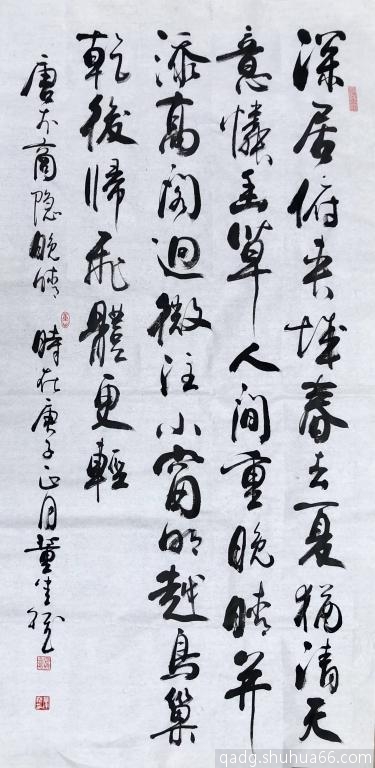 深居俯夾城春去夏猶清天
意憐幽草人間重晚晴并
添高閣迥微注小窗明越鳥巢
乾後歸飛體更輕
唐李商隐晚晴 時在庚子正月董
qadg.shuhua66.com